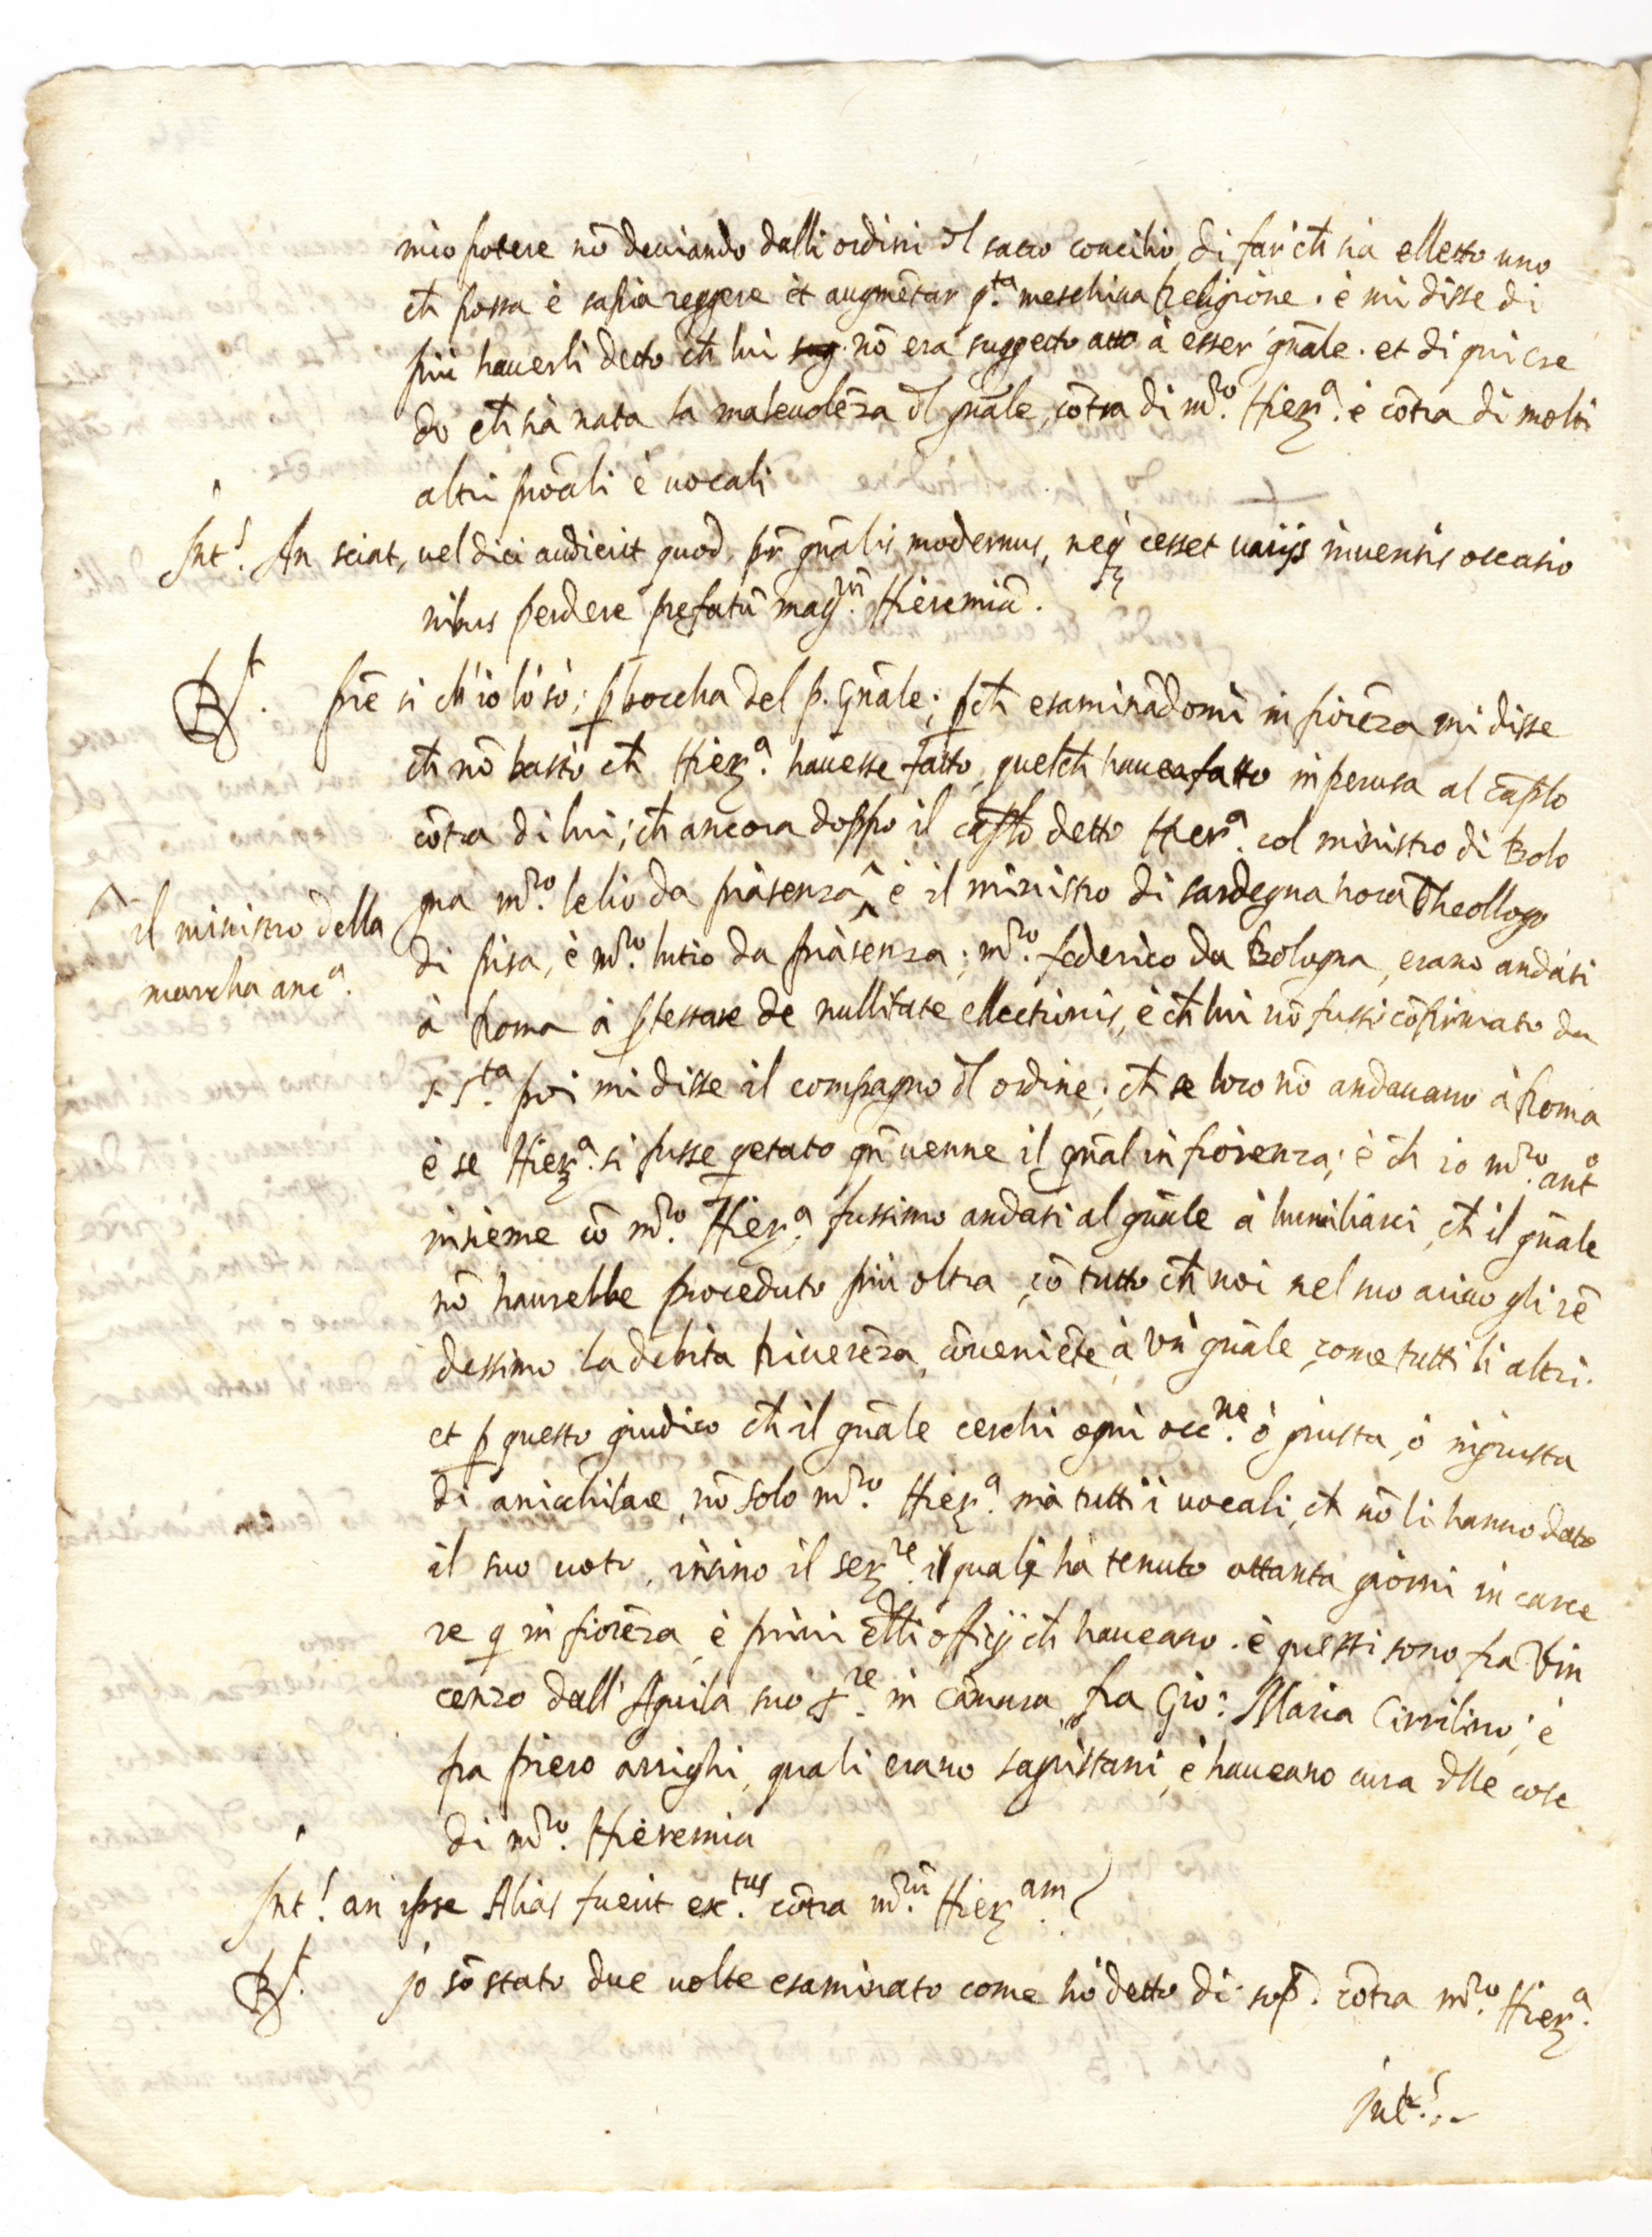 mio potere nō deuiando dalli ordini dl sacro concilio, di far ch sia elletto uno
ch possa è sapia reggere et augmētar q.ta meschina Religione. è mi disse di
più hauerli detto ch lui nō era suggecto atto à esser gn̄ale. et di qui cre
do ch sia nata la maleuolēza dl gn̄ale, cōtra di m̄ro. Hier.a è cōtra di molti
altri prōali è uocali
Int.s An sciat, uel dici audierit quod, pr̄ gn̄alis modernus, neq cesset varijs inuentis occasio
nibus perdere prefatū mag.m̄ Hieremiā.
R.t prē si ch'io lo so; p boccha del p. Gn̄ale; pch esaminādomi in fiorēza mi disse
ch nō bastò ch Hier.a hauesse fatto, quelch hauea fatto in perusa al cap̄lo
cōtra di lui; ch ancora doppo il cap̄lo detto Hier.a col ministro di Bolo
gna m̄ro. lelio da piasenza ^ è il ministro di sardegna hora Theollogo
il ministro della
marcha anc.a
di pisa, è m̄ro. lutio da piàsenza; m̄ro. federico da Bologna, erano andati
à Roma à ptestare de nullitate ellectionis, è ch lui nō fussi cōfirmato da
S. S.ta poi mi disse il compagno dl ordine; ch se loro nō andauano à Roma
è se Hier.a si fusse getato qn̄ uenne il gn̄al in fiorenza; è ch io m̄ro. ant.o
insieme cō m̄ro. Hier.a fussimo andati al gn̄ale à humiliarci, ch il gn̄ale
nō haurebbe proceduto più oltra, cō tutto ch noi nel suo ariuo gli rē
dessimo la debita riuerēza, cōueniēte à un gn̄ale, come tutti li altri.
et p questo giudico ch il gn̄ale cerchi ogni occ.ne ò giusta, ò ingiusta
di anicchilare, nō solo m̄ro. Hier.a mà tutti i uocali, ch nō li hanno dato
il suo uoto, insino il ser.re il quale hà tenuto ottanta giorni in carce
re q in fiorēza, è priui dlli officij ch haueano. è questi sono fra Vin
cenzo dall'Aquila suo s.re in camara, fra Gio: Maria Cirrilino; è
fra piero arrighi, quali erano sagristani, è haueano cura dlle cose
di m̄ro. Hieremia
Int.s an ipse Alias fuerit ex.tus cōtra m̄.m̄ Hier.am
R.t Jo sō stato due uolte esaminato come hò detto di sop. cōtra m̄ro. Hier.a
Int.s